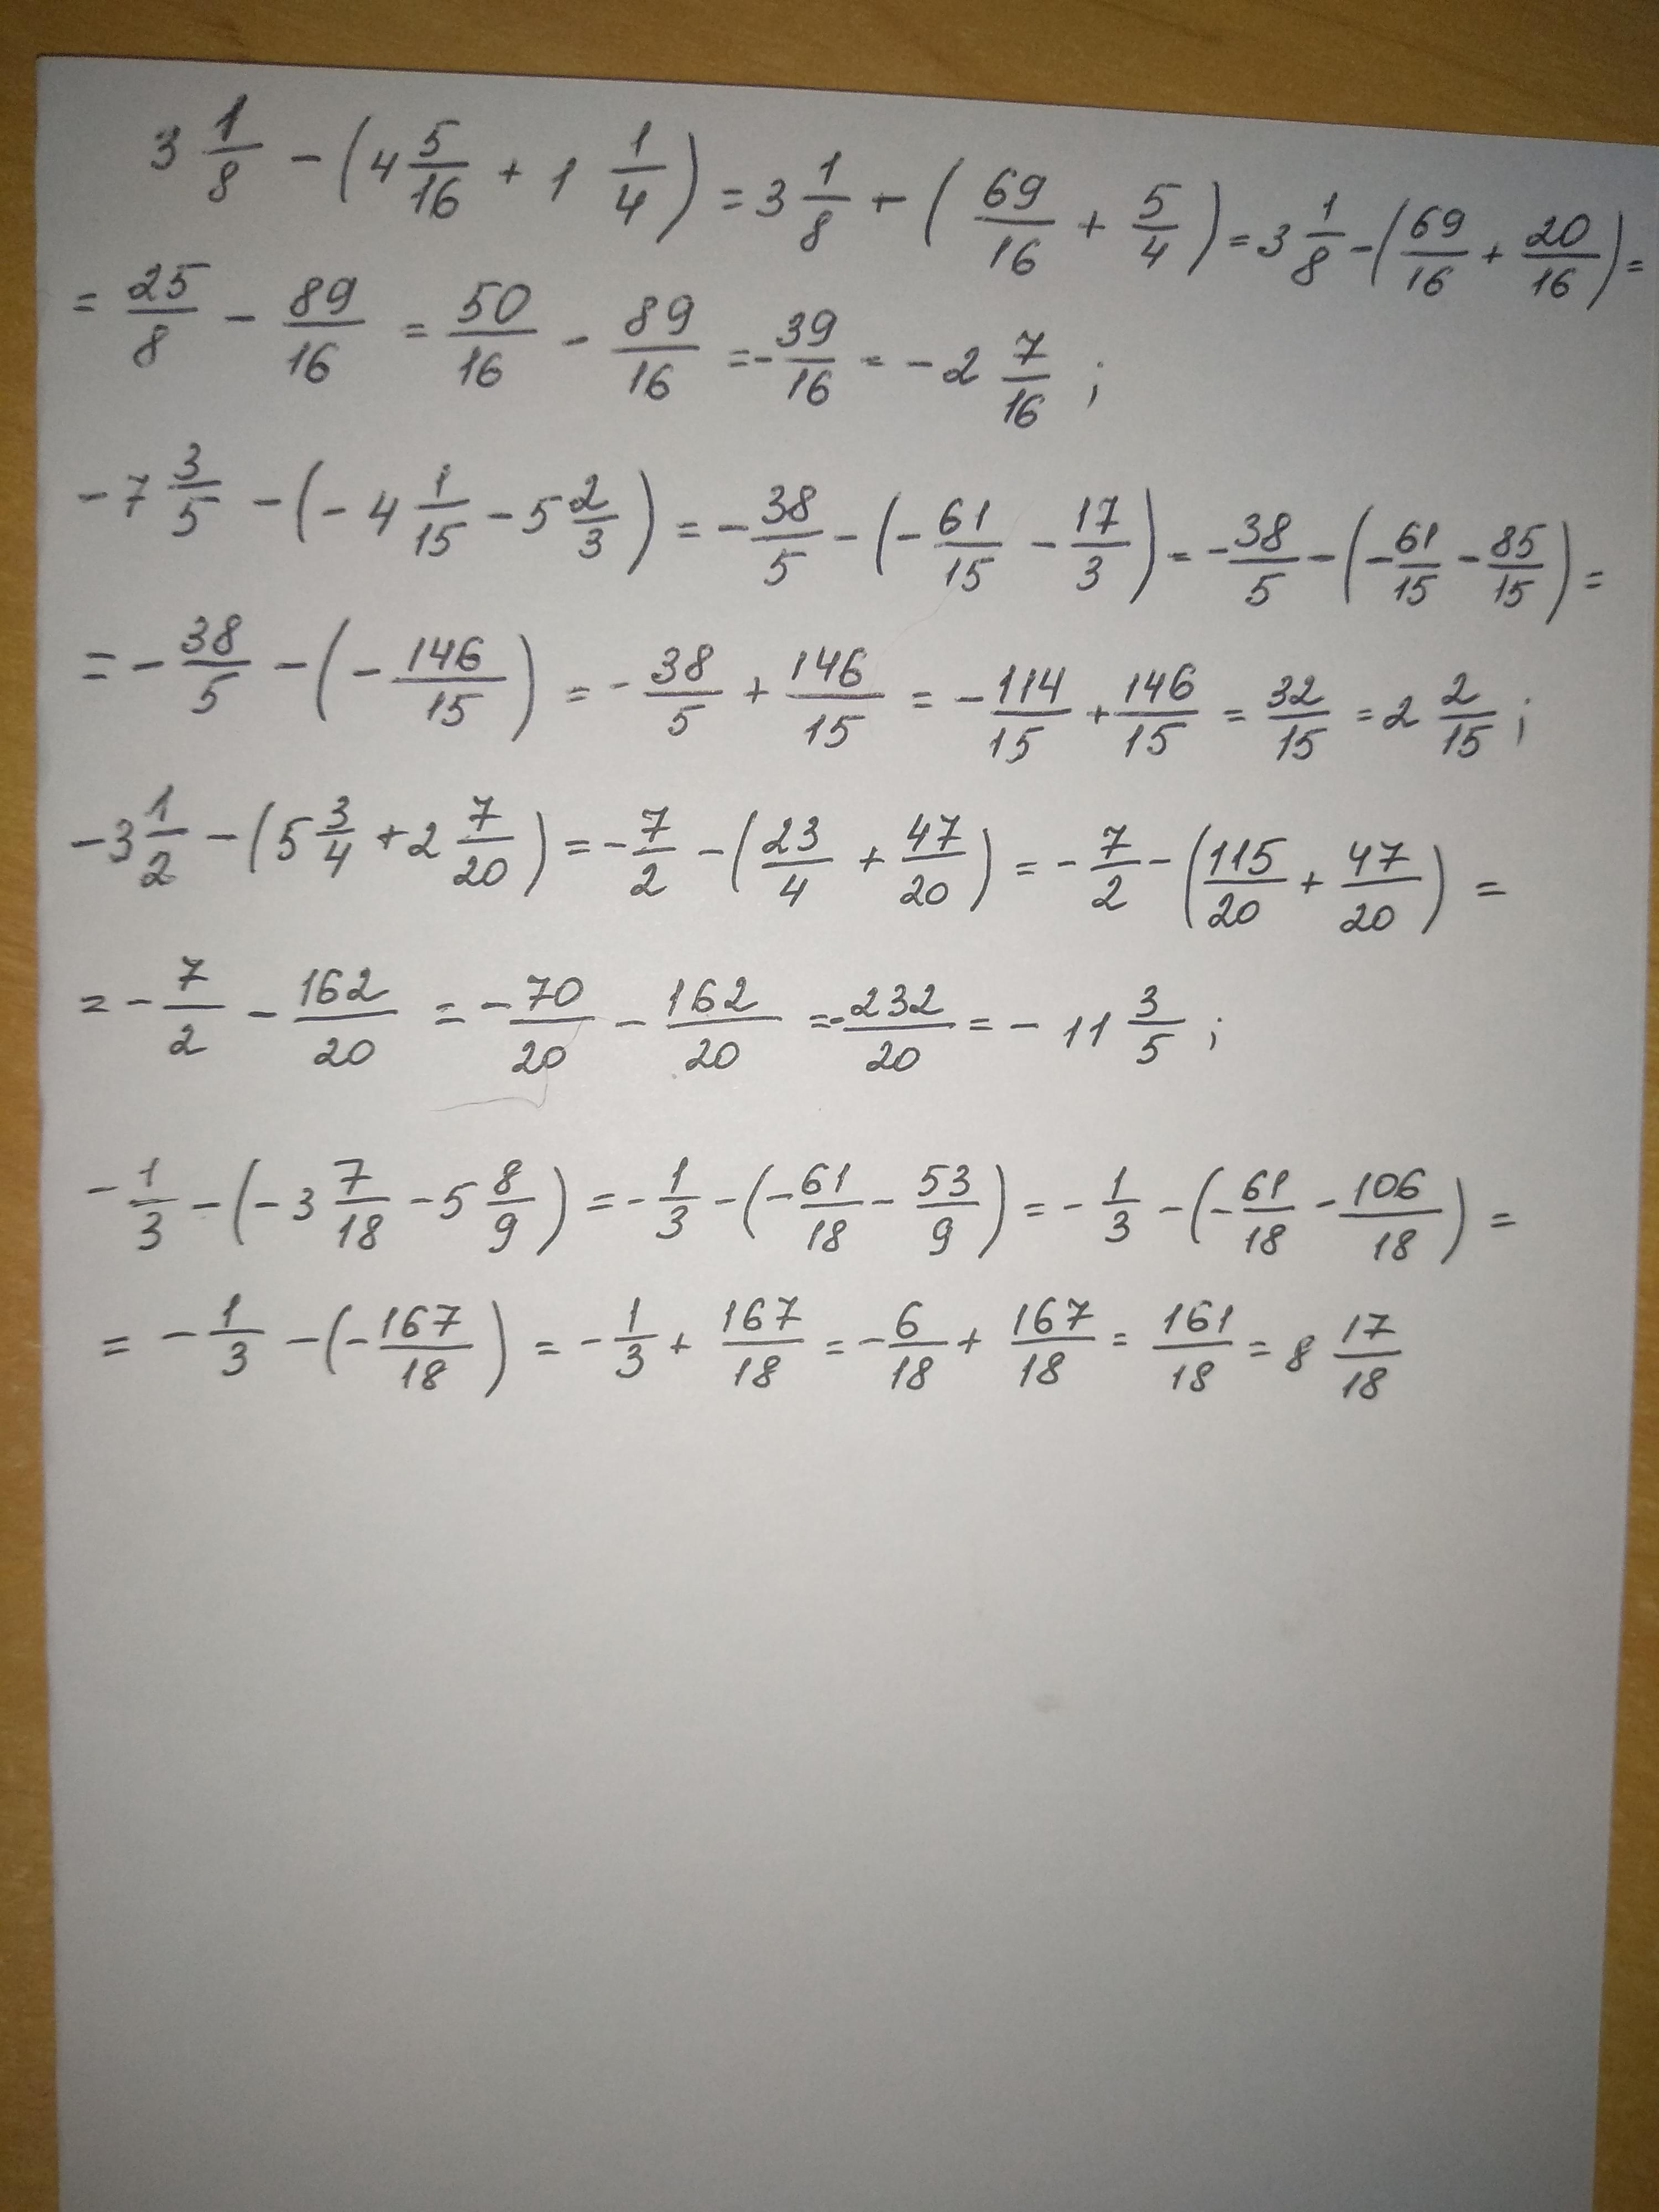 3 1/8 - (4 5/16 + 1 1/4) = 3 1/8 - (69/16 + 5/4) = 3 1/8 - (69/16 + 20/16) =
= 25/8 - 89/16 = 50/16 - 89/16 = -39/16 = -2 7/16 ;
-7 3/5 - (-4 1/15 - 5 2/3) = -38/5 - (-61/15 - 17/3) = -38/5 - (-61/15 - 85/15) =
= -38/5 - (-146/15) = -38/5 + 146/15 = -114/15 + 146/15 = 32/15 = 2 2/15 ;
-3 1/2 - (5 3/4 + 2 7/20) = -7/2 - (23/4 + 47/20) = -7/2 - (115/20 + 47/20) =
= -7/2 - 162/20 = -70/20 - 162/20 = -232/20 = -11 3/5 ;
-1/3 - (-3 7/18 - 5 8/9) = -1/3 - (-61/18 - 53/9) = -1/3 - (-61/18 - 106/18) =
= -1/3 - (-167/18) = -1/3 + 167/18 = -6/18 + 167/18 = 161/18 = 8 17/18